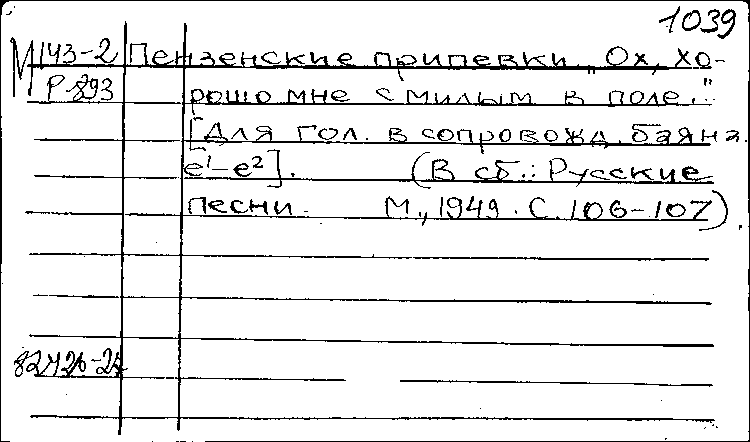 1039
М 143-2 Пензенские припевки. „Ох, хо-
Р-893 рошо мне с милым в поле..."
[Для гол. в сопровожд. баяна.
e¹-e²]. (В сб.: Русские
песни. М., 1949. С. 106-107).